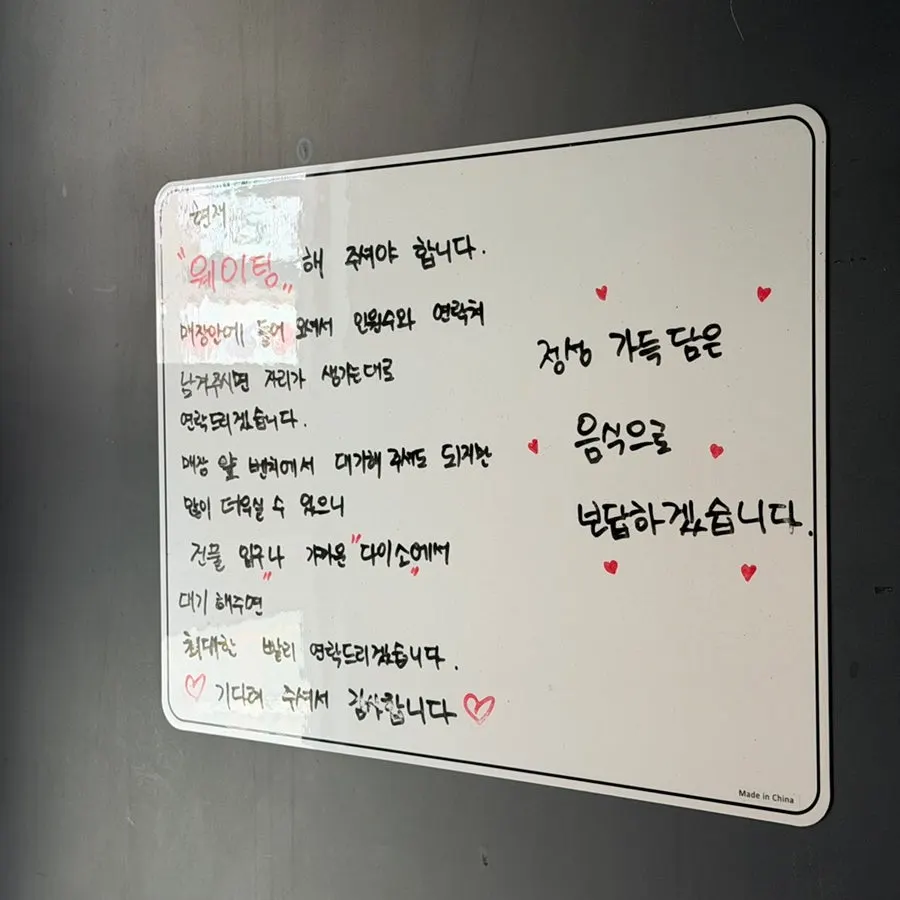 현재
"웨이팅" 해 주셔야 합니다.
매장안에 들어 오셔서 인원수와 연락처
남겨주시면 자리가 생기는대로
연락드리겠습니다.
매장 앞 벤치에서 대기해 주셔도 되지만
많이 더우실 수 있으니
건물 입구나 가까운 "다이소"에서
대기 해주면
최대한 빨리 연락드리겠습니다.
♡ 기다려 주셔서 감사합니다 ♡
정성 가득 담은
음식으로
보답하겠습니다.
Made in China